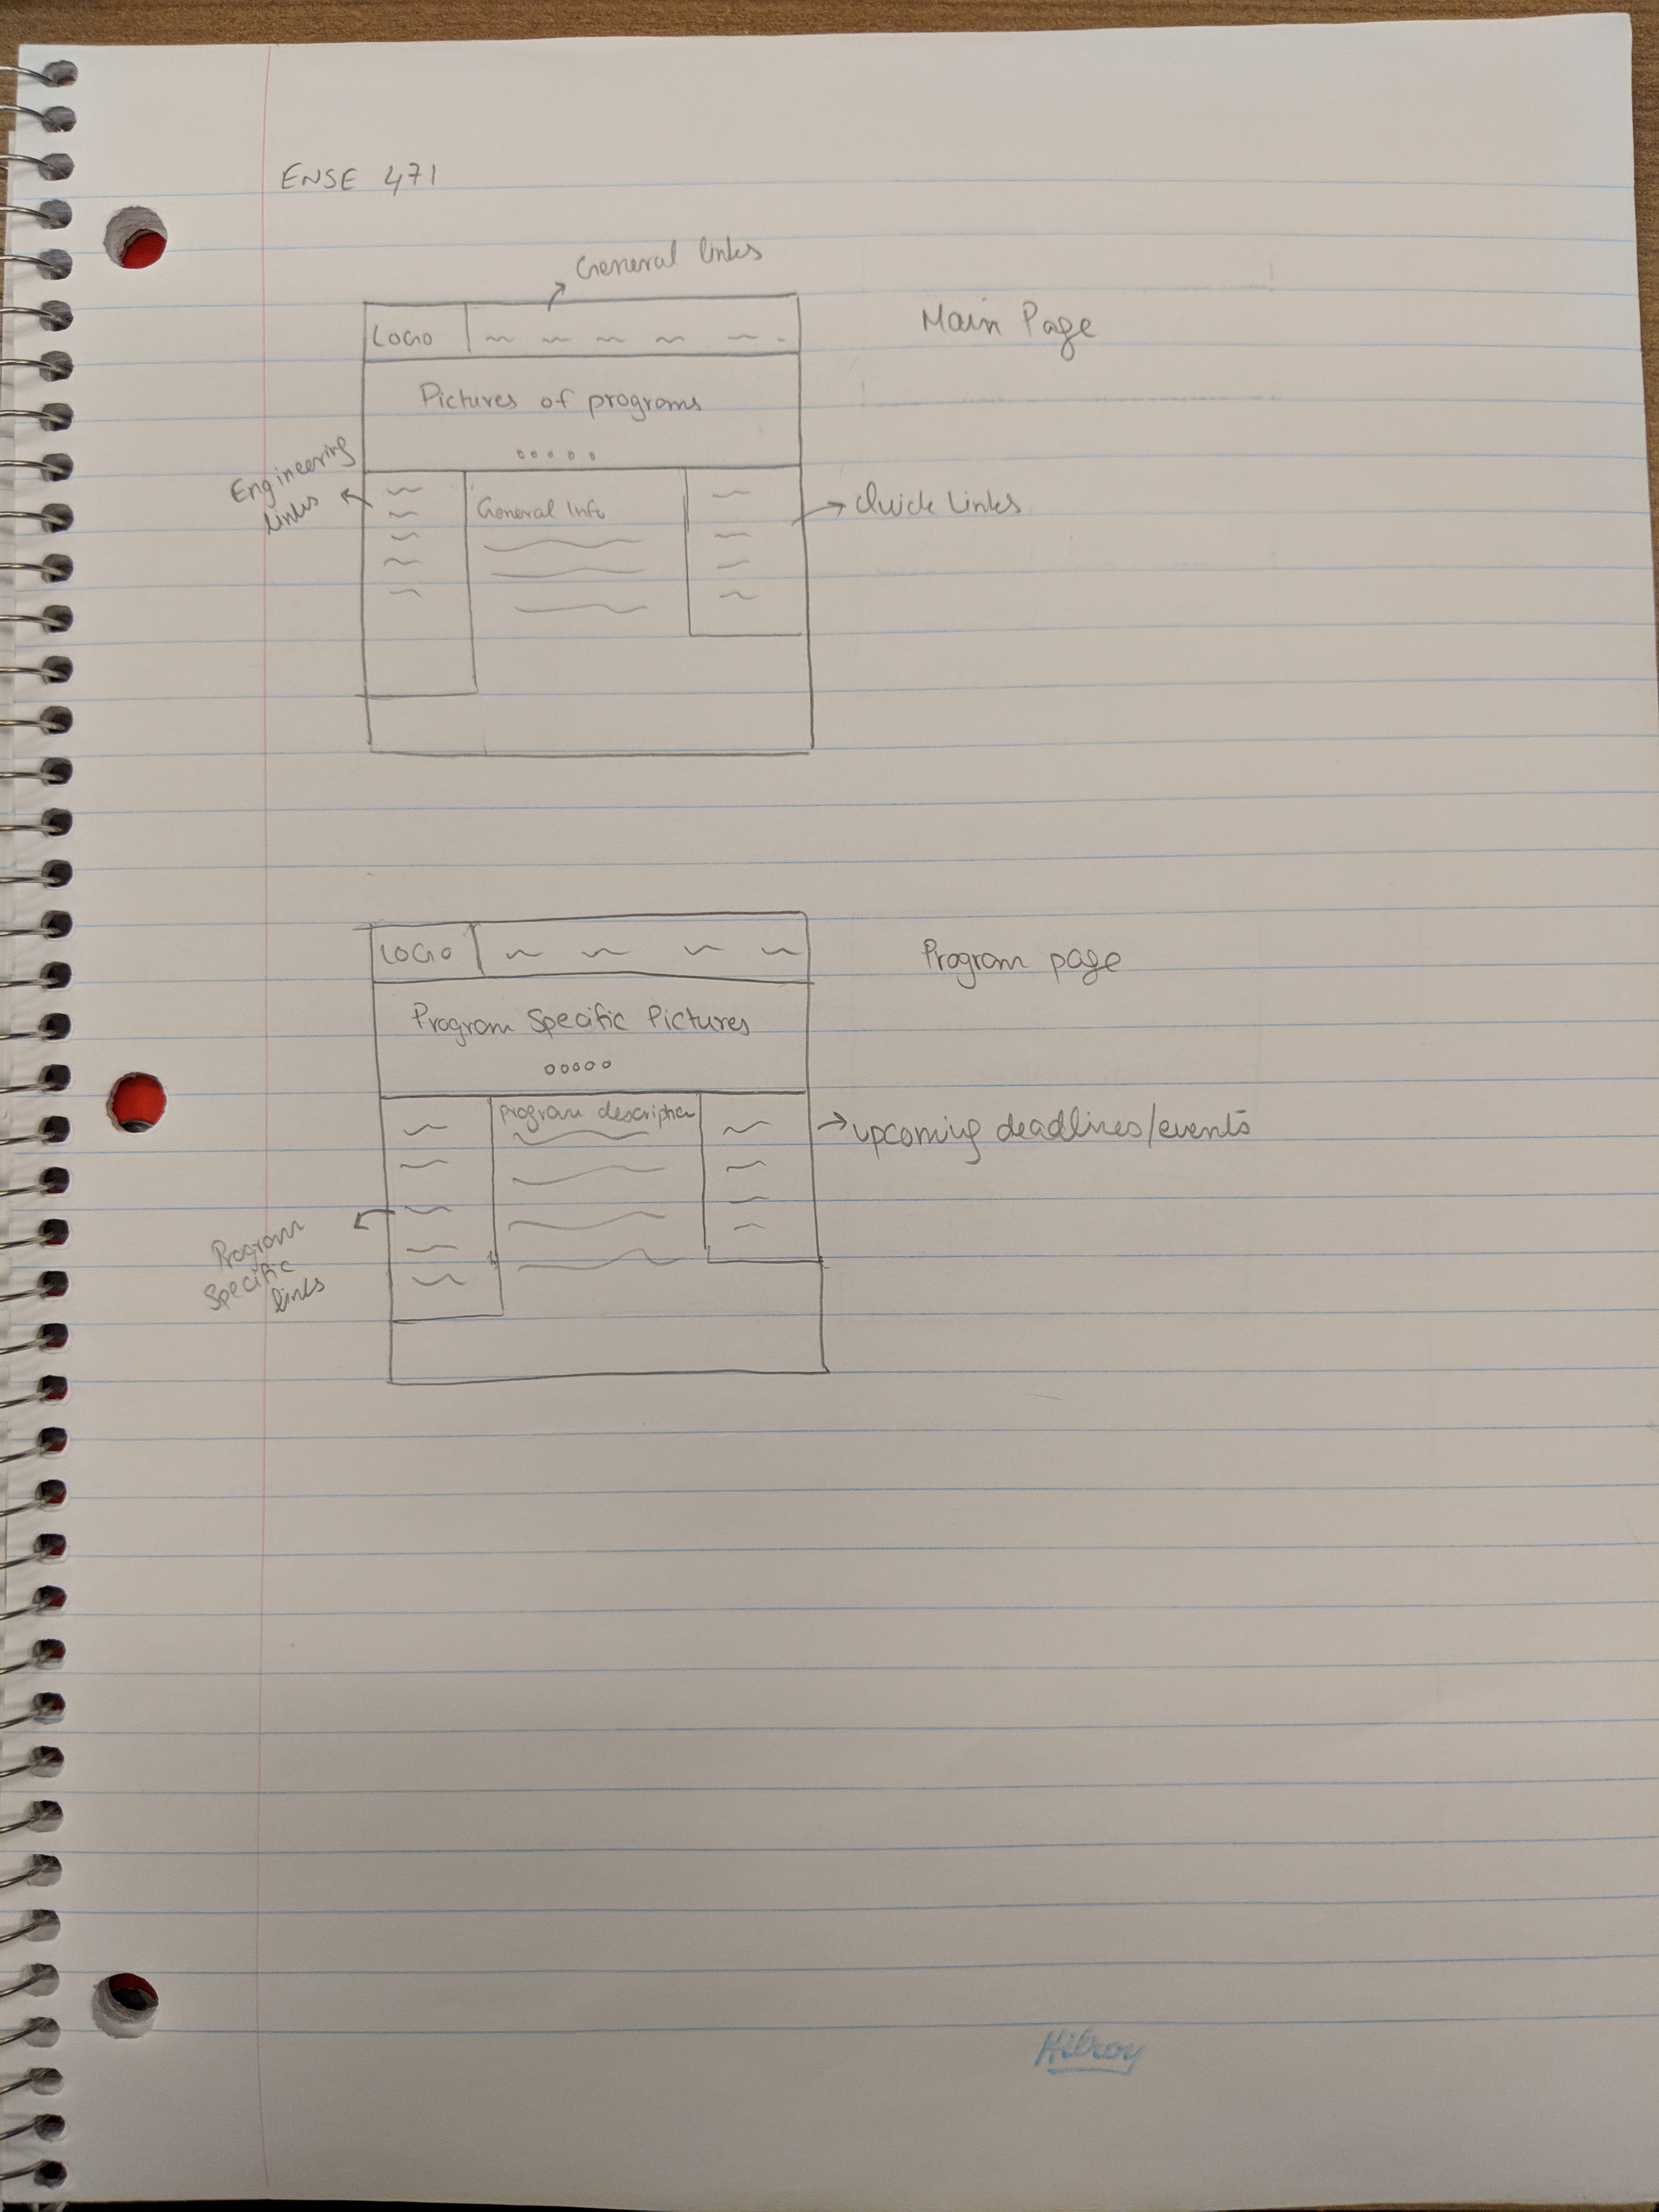 ENSE 471
General links
Main Page
LOGO
Pictures of programs
Engineering
links
General Info
Quick Links
LOGO
Program page
Program Specific Pictures
program description
upcoming deadlines/events
Program
Specific
links
Hilroy